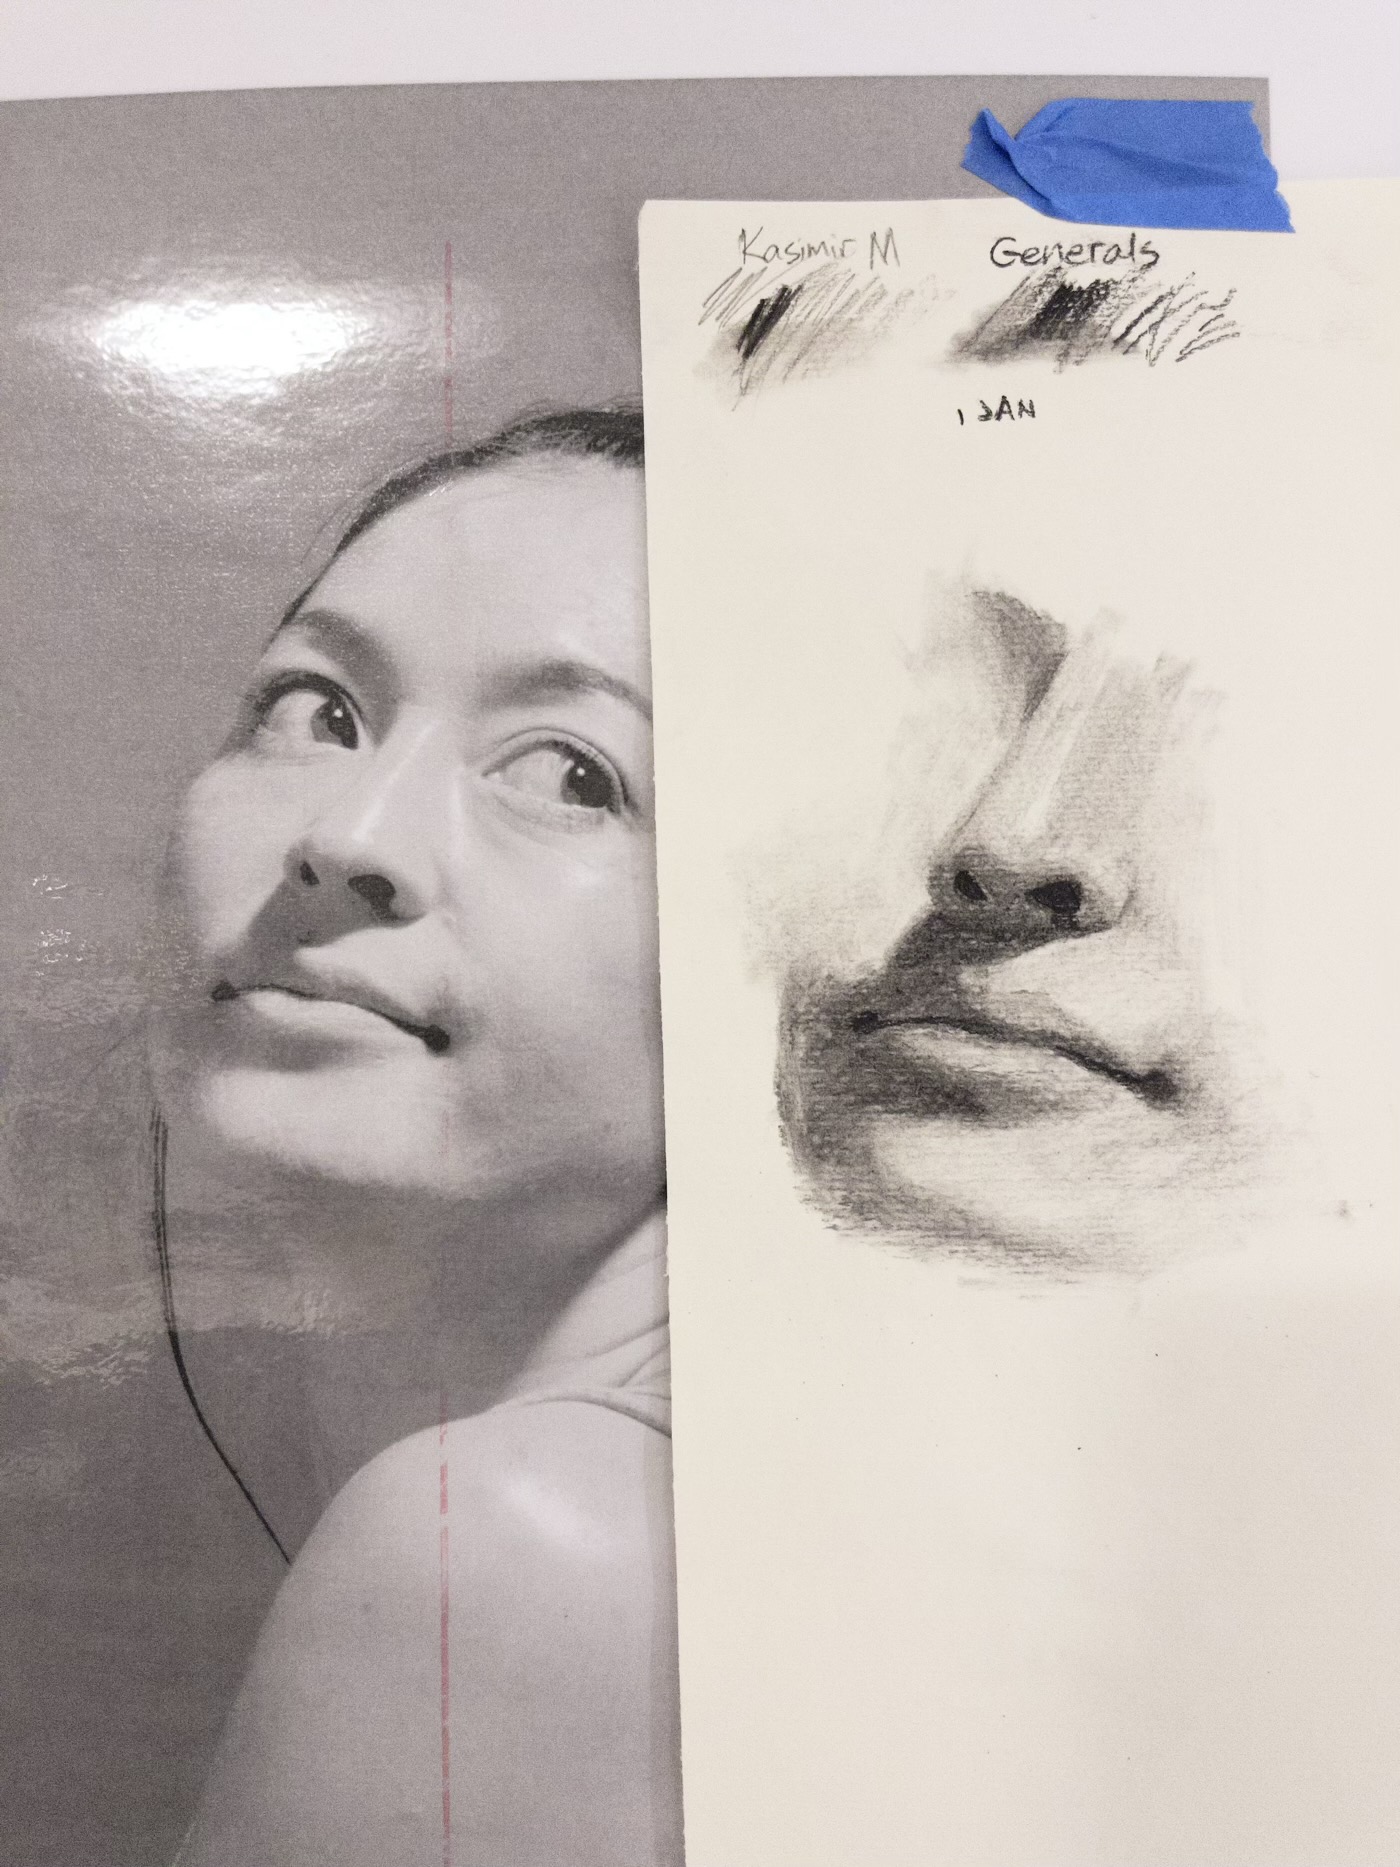 Kasimir M
Generals
1 JAN